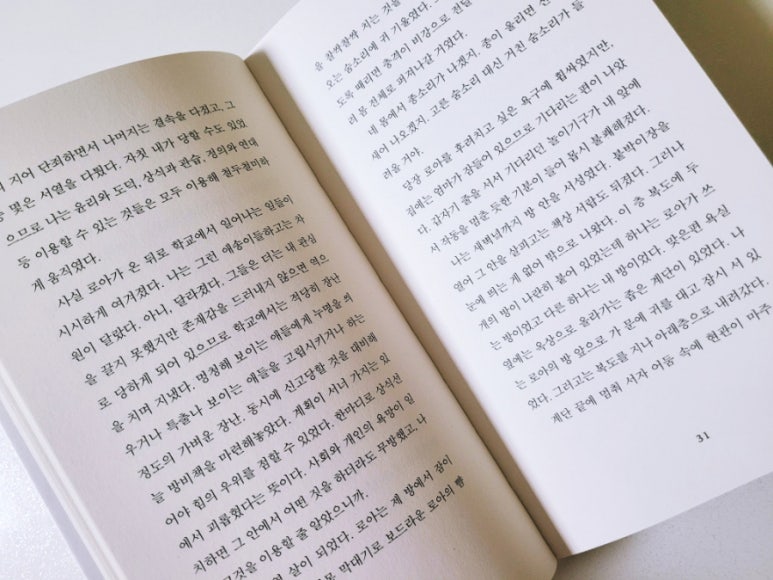 지어 단죄하면서 나머지는 결속을 다졌고, 그
몇은 서열을 다퉜다. 자칫 내가 당할 수도 있었
으므로 나는 윤리와 도덕, 상식과 관습, 정의와 연대
등 이용할 수 있는 것들은 모두 이용해 철두철미하
게 움직였다.
사실 로아가 온 뒤로 학교에서 일어나는 일들이
시시하게 여겨졌다. 나는 그런 애송이들하고는 차
원이 달랐다. 아니, 달라졌다. 그들은 더는 내 관심
을 끌지 못했지만 존재감을 드러내지 않으면 역으
로 당하게 되어 있으므로 학교에서는 적당히 장난
을 치며 지냈다. 멍청해 보이는 애들에게 누명을 씌
우거나 특출나 보이는 애들을 고립시키거나 하는
정도의 가벼운 장난. 동시에 신고당할 것을 대비해
늘 방비책을 마련해놓았다. 계획이 서너 가지는 있
어야 힘의 우위를 점할 수 있었다. 한마디로 상식선
에서 괴롭혔다는 뜻이다. 사회와 개인의 욕망이 일
치하면 그 안에서 어떤 것을 하더라도 무방했고, 나
그것을 이용할 줄 알았으니까.
살이 되었다. 로아는 제 방에서 잠이
막대기로 보드라운 로아의 뺨
을 잘싸잘싸 치는 것을
오는 숨소리에 귀 기울였다.
도록 때리면 충격이 비강으로 전달
러 몸 전체로 퍼져나갈 거였다.
내 몸에서 종소리가 나겠지. 종이 울리면 신
새어 나오겠지. 고른 숨소리 대신 거친 숨소리가 들
려올 거야.
당장 로아를 후려치고 싶은 욕구에 휩싸였지만,
집에는 엄마가 잠들어 있으므로 기다리는 편이 나았
다. 갑자기 줄을 서서 기다리던 놀이기구가 내 앞에
서 작동을 멈춘 듯한 기분이 들어 몹시 불쾌해졌다.
나는 새벽녘까지 방 안을 서성였다. 붙박이장을
열어 그 안을 살피고는 책상 서랍도 뒤졌다. 그러나
눈에 띄는 게 없어 밖으로 나왔다. 이 층 복도에 두
개의 방이 나란히 붙어 있었는데 하나는 로아가 쓰
는 방이었고 다른 하나는 내 방이었다. 맞은편 욕실
옆에는 옥상으로 올라가는 좁은 계단이 있었다. 나
는 로아의 방 앞으로 가 문에 귀를 대고 잠시 서 있
었다. 그러고는 복도를 지나 아래층으로 내려갔다.
계단 끝에 멈춰 서자 어둠 속에 현관이 마주
31